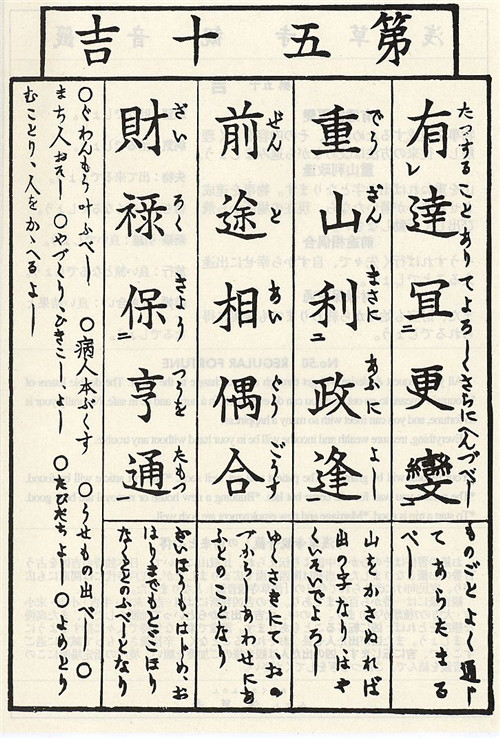 第五十吉
たつすることありてよろしくさらにへんづべし
有レ達宜二更變
ものごとよく通し
てあらたまる
べし
でうざんまさにあふによし
重山利二政逢
山をかさぬれば
出の字なり、はや
くいそいでよろし
ぜんとあいぐうごう
前途相偶合
ゆくさきにておの
づからしあわせにあ
ふとのことなり
ざいろくきようをたもつ
財禄保二亨通
お
はりまでもとどこほり
べしとなり
○ぐわんもう叶ふべし ○病人本ぶくす ○うせもの出べし ○
まち人おそし ○やづくり、ひきこしよし ○たびだちよし ○よめとり
むことり、人をかゝへるよし